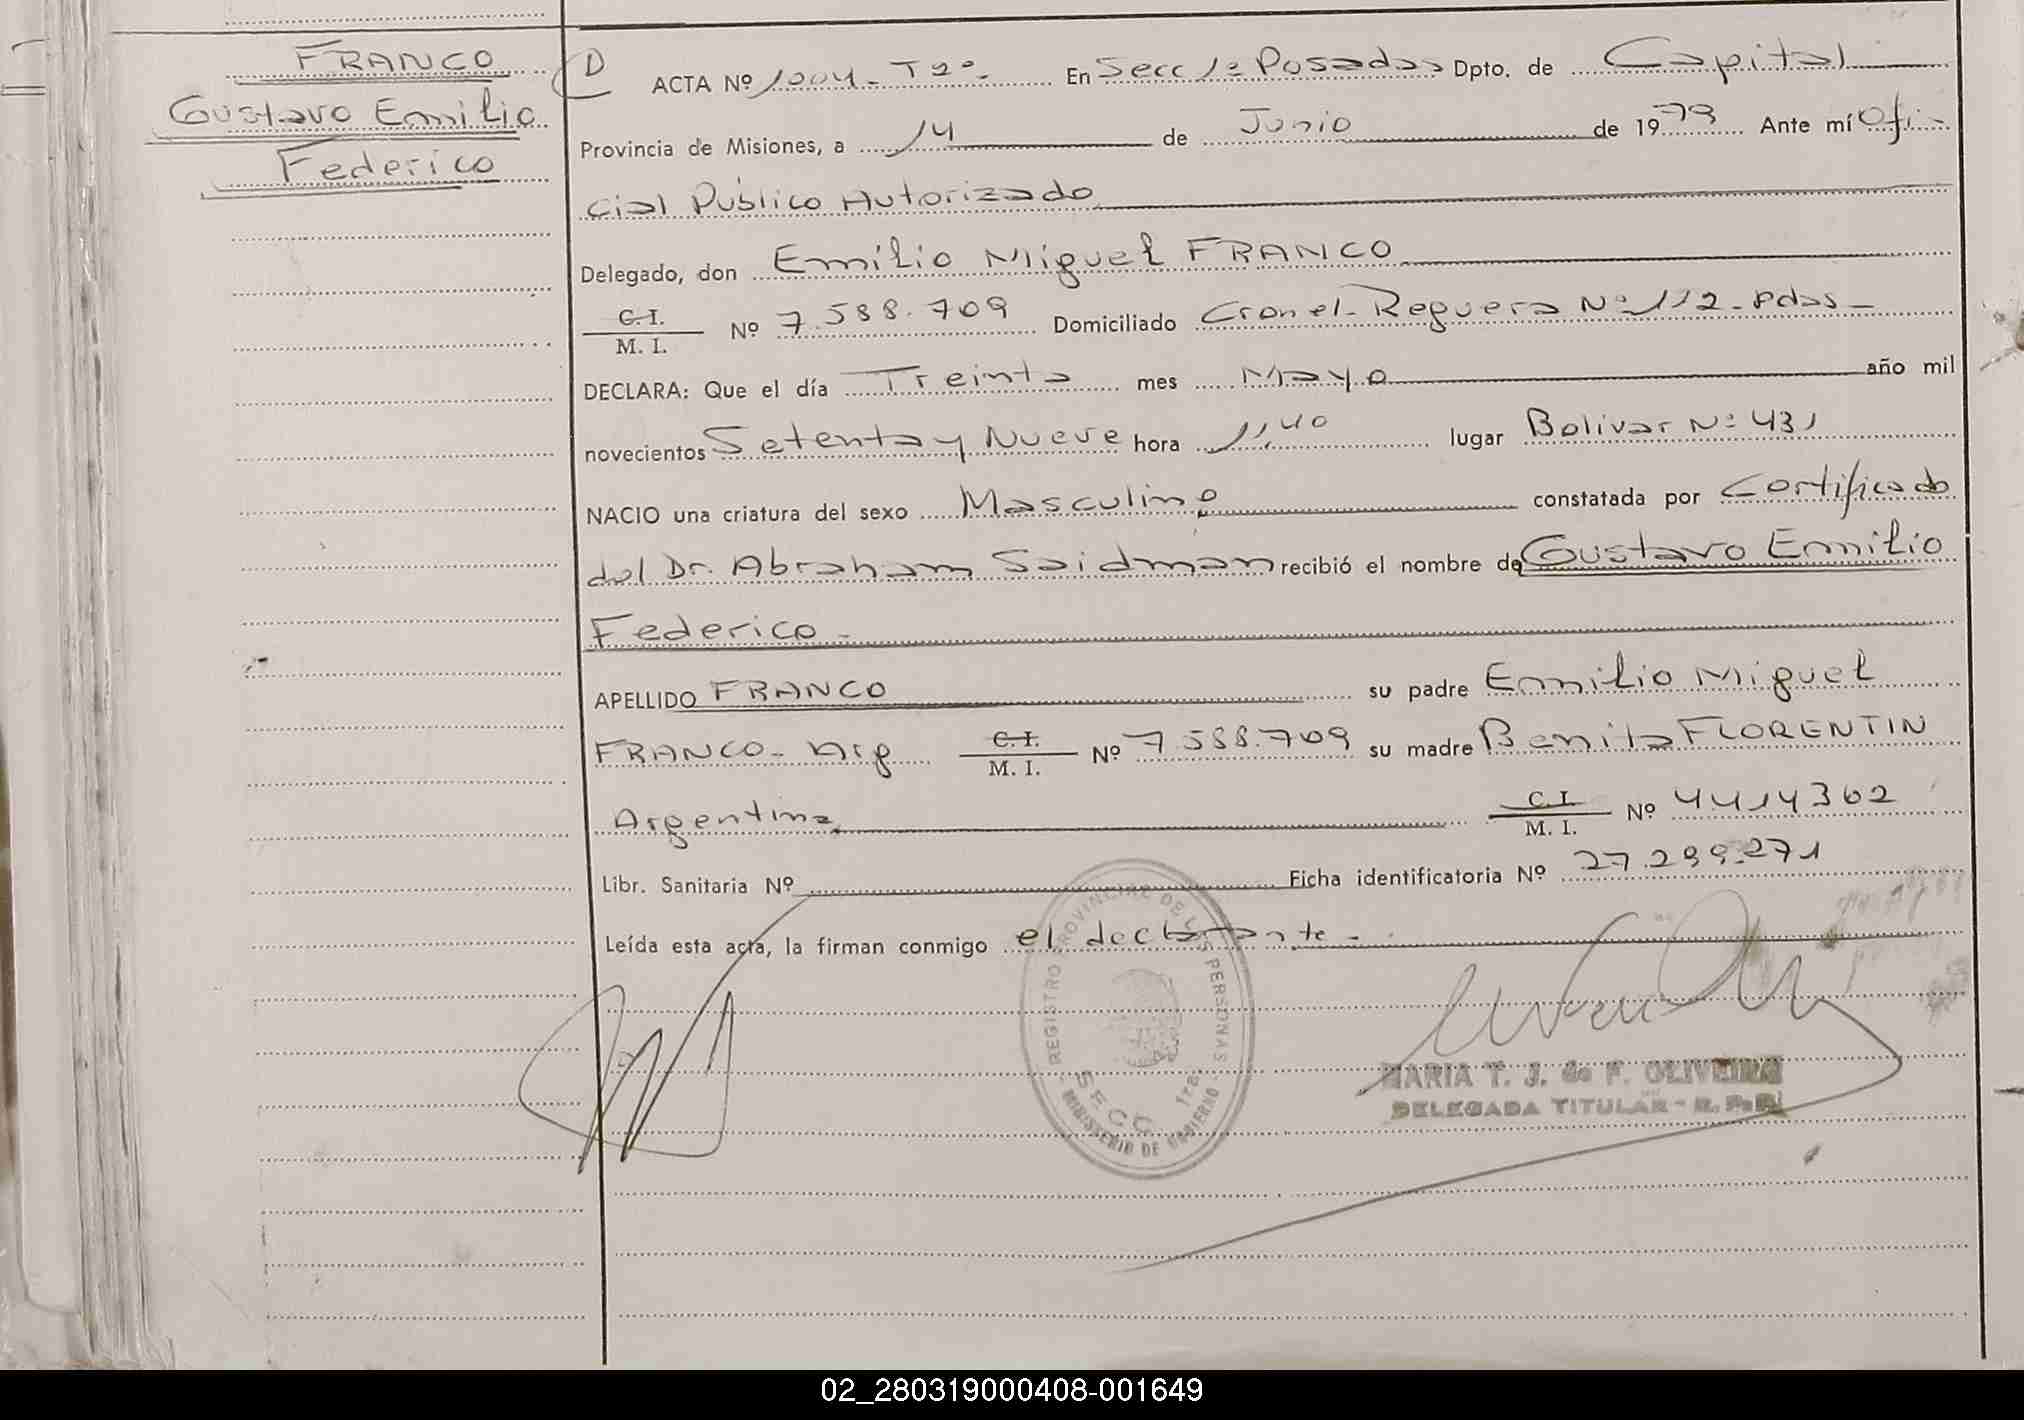 FRANCO
Gustavo Emilio
Federico
D
ACTA Nº 1004 - T2º - En Secc 1ª Posadas Dpto. de Capital
Provincia de Misiones, a 14 de Junio de 1979 Ante mí Ofi-
cial Público Autorizado
Delegado, don Emilio Miguel FRANCO
C.I.
M. I. Nº 7.588.709 Domiciliado Cronel. Reguera Nº 112 - Pdas -
DECLARA: Que el día Treinta mes Mayo año mil
novecientos Setenta y Nueve hora 11,40 lugar Bolivar Nº 431
NACIO una criatura del sexo Masculino constatada por Certificado
del Dr. Abraham Saidman recibió el nombre de Gustavo Emilio
Federico -
APELLIDO FRANCO su padre Emilio Miguel
FRANCO - Arg C.I. M. I. Nº 7.588.709 su madre Benita FLORENTIN
Argentina C.I. M. I. Nº 4414362
Libr. Sanitaria Nº Ficha identificatoria Nº 27.299.271
Leída esta acta, la firman conmigo el declarante -
REGISTRO PROVINCIAL DE LAS PERSONAS
SECC. 1ra.
MINISTERIO DE GOBIERNO
MARIA T. J. de F. OLIVEIRA
DELEGADA TITULAR - R. P. P.
02_280319000408-001649